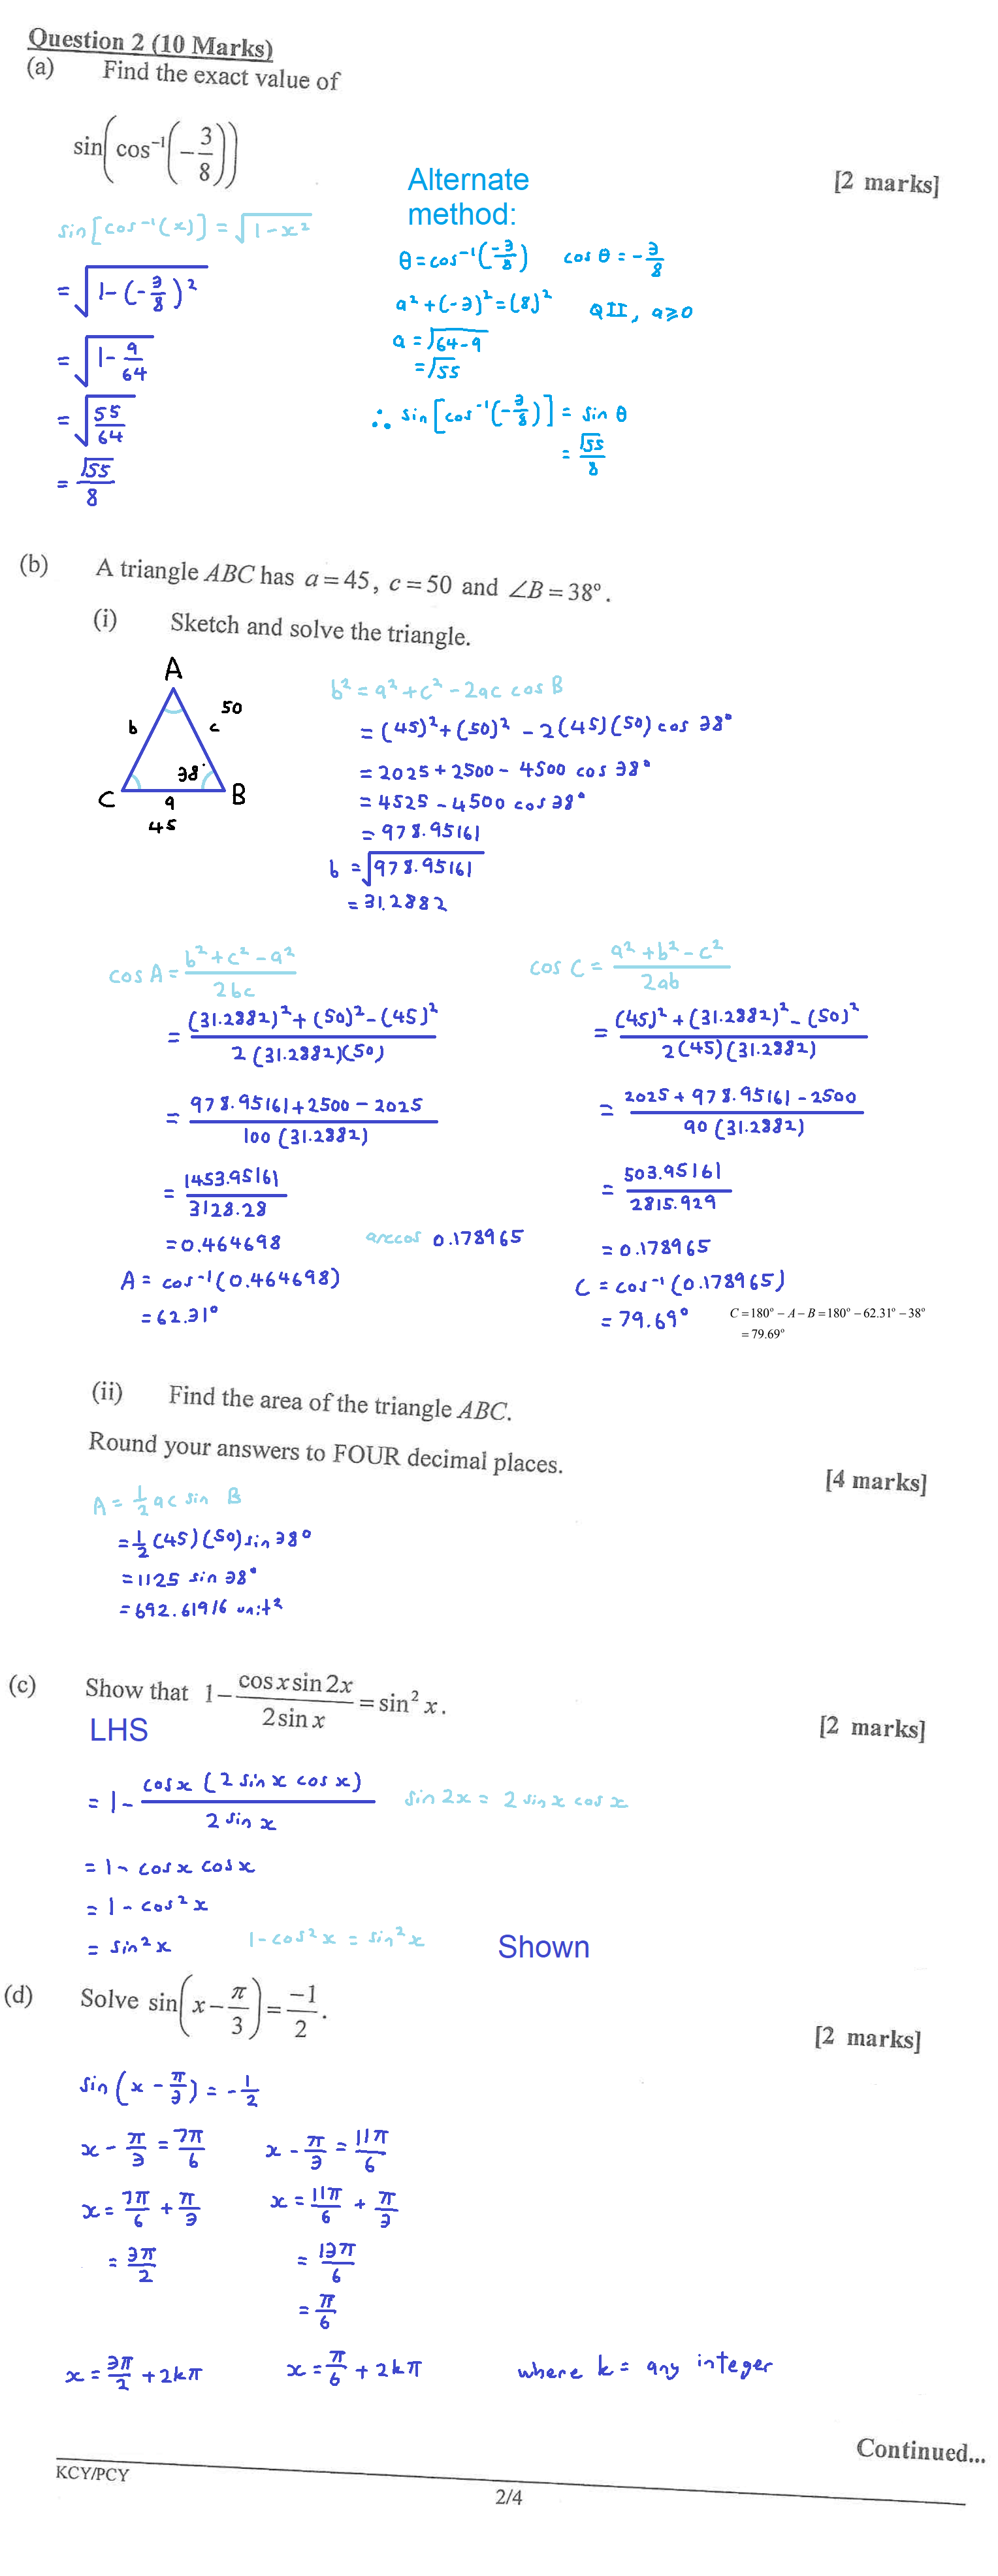 Question 2 (10 Marks)
(a) Find the exact value of
sin(cos⁻¹(-3/8))
[2 marks]
Alternate
method:
sin[cos⁻¹(x)] = √(1-x²)
= √(1-(-3/8)²)
= √(1-9/64)
= √(55/64)
= √55/8
θ = cos⁻¹(-3/8) cos θ = -3/8
a² + (-3)² = (8)² QII, a≥0
a = √(64-9)
= √55
∴ sin[cos⁻¹(-3/8)] = sin θ
= √55/8
(b) A triangle ABC has a = 45, c = 50 and ∠B = 38°.
(i) Sketch and solve the triangle.
A
b
50
c
38°
C
a
B
45
b² = a² + c² - 2ac cos B
= (45)² + (50)² - 2(45)(50) cos 38°
= 2025 + 2500 - 4500 cos 38°
= 4525 - 4500 cos 38°
= 978.95161
b = √978.95161
= 31.2882
cos A = (b² + c² - a²)/2bc
= ((31.2882)² + (50)² - (45)²)/(2(31.2882)(50))
= (978.95161 + 2500 - 2025)/(100(31.2882))
= 1453.95161/3128.28
= 0.464698
A = cos⁻¹(0.464698)
= 62.31°
arccos 0.178965
cos C = (a² + b² - c²)/2ab
= ((45)² + (31.2882)² - (50)²)/(2(45)(31.2882))
= (2025 + 978.95161 - 2500)/(90(31.2882))
= 503.95161/2815.929
= 0.178965
C = cos⁻¹(0.178965)
= 79.69°
C = 180° - A - B = 180° - 62.31° - 38°
= 79.69°
(ii) Find the area of the triangle ABC.
Round your answers to FOUR decimal places.
[4 marks]
A = 1/2 ac sin B
= 1/2 (45)(50) sin 38°
= 1125 sin 38°
= 692.61916 unit²
(c) Show that 1 - (cos x sin 2x)/(2 sin x) = sin² x.
[2 marks]
LHS
= 1 - (cos x (2 sin x cos x))/(2 sin x) sin 2x = 2 sin x cos x
= 1 - cos x cos x
= 1 - cos² x
= sin² x 1 - cos² x = sin² x Shown
(d) Solve sin(x - π/3) = -1/2.
[2 marks]
sin(x - π/3) = -1/2
x - π/3 = 7π/6 x - π/3 = 11π/6
x = 7π/6 + π/3 x = 11π/6 + π/3
= 3π/2 = 13π/6
= π/6
x = 3π/2 + 2kπ x = π/6 + 2kπ where k = any integer
Continued...
KCY/PCY
2/4